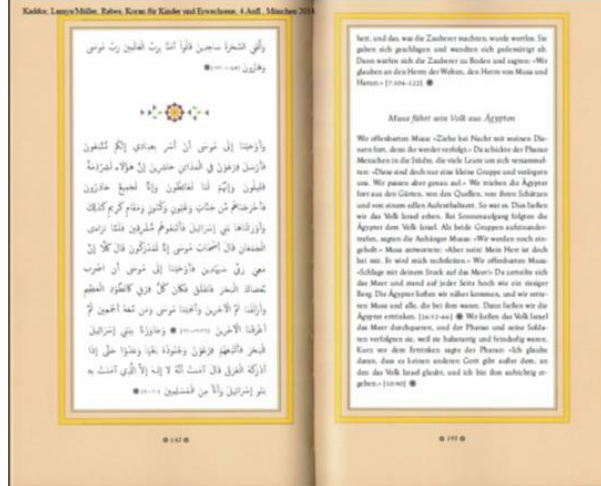 Kaddor, Lamya/Müller, Rabea, Koran für Kinder und Erwachsene, 4.Aufl., München 201
وَأُلْقِيَ السَّحَرَةُ سَاجِدِينَ قَالُواْ آمَنَّا بِرِبِّ الْعَالَمِينَ رَبِّ مُوسَى
وَهَارُونَ
وَأَوْحَيْنَا إِلَى مُوسَى أَنْ أَسْرِ بِعِبَادِي إِنَّكُم مُّتَّبَعُونَ
فَأَرْسَلَ فِرْعَوْنُ فِي الْمَدَائِنِ حَاشِرِينَ إِنَّ هَؤُلَاء لَشِرْذِمَةٌ
قَلِيلُونَ وَإِنَّهُمْ لَنَا لَغَائِظُونَ وَإِنَّا لَجَمِيعٌ حَاذِرُونَ
فَأَخْرَجْنَاهُم مِّن جَنَّاتٍ وَعُيُونٍ وَكُنُوزٍ وَمَقَامٍ كَرِيمٍ كَذَلِكَ
وَأَوْرَثْنَاهَا بَنِي إِسْرَائِيلَ فَأَتْبَعُوهُم مُّشْرِقِينَ فَلَمَّا تَرَاءى
الْجَمْعَانِ قَالَ أَصْحَابُ مُوسَى إِنَّا لَمُدْرَكُونَ قَالَ كَلَّا إِنَّ
مَعِيَ رَبِّي سَيَهْدِينِ فَأَوْحَيْنَا إِلَى مُوسَى أَنِ اضْرِب
بِّعَصَاكَ الْبَحْرَ فَانفَلَقَ فَكَانَ كُلُّ فِرْقٍ كَالطَّوْدِ الْعَظِيمِ
وَأَزْلَفْنَا ثَمَّ الْآخَرِينَ وَأَنجَيْنَا مُوسَى وَمَن مَّعَهُ أَجْمَعِينَ ثُمَّ
أَغْرَقْنَا الْآخَرِينَ وَجَاوَزْنَا بِبَنِي إِسْرَائِيلَ
الْبَحْرَ فَأَتْبَعَهُمْ فِرْعَوْنُ وَجُنُودُهُ بَغْيًا وَعَدْوًا حَتَّى إِذَا
أَدْرَكَهُ الْغَرَقُ قَالَ آمَنتُ أَنَّهُ لا إِلِهَ إِلاَّ الَّذِي آمَنَتْ بِهِ
بَنُو إِسْرَائِيلَ وَأَنَاْ مِنَ الْمُسْلِمِينَ
heit, und das, was die Zauberer machten, wurde wertlos. Sie
gaben sich geschlagen und wandten sich gedemütigt ab.
Dann warfen sich die Zauberer zu Boden und sagten: «Wir
glauben an den Herrn der Welten, den Herrn von Musa und
Harun.» [7:104–122]
Musa führt sein Volk aus Ägypten
Wir offenbarten Musa: «Ziehe bei Nacht mit meinen Die-
nern fort, denn ihr werdet verfolgt.» Da schickte der Pharao
Menschen in die Städte, die viele Leute um sich versammel-
ten: «Diese sind doch nur eine kleine Gruppe und verärgern
uns. Wir passen aber genau auf.» Wir trieben die Ägypter
fort aus den Gärten, von den Quellen, von ihren Schätzen
und von einem edlen Aufenthaltsort. So war es. Dies ließen
wir das Volk Israel erben. Bei Sonnenaufgang folgten die
Ägypter dem Volk Israel. Als beide Gruppen aufeinander-
trafen, sagten die Anhänger Musas: «Wir werden noch ein-
geholt.» Musa antwortete: «Aber nein! Mein Herr ist doch
bei mir. Er wird mich rechtleiten.» Wir offenbarten Musa:
«Schlage mit deinem Stock auf das Meer!» Da zerteilte sich
das Meer und stand auf jeder Seite hoch wie ein riesiger
Berg. Die Ägypter ließen wir näher kommen, und wir rette-
ten Musa und alle, die bei ihm waren. Dann ließen wir die
Ägypter ertrinken. [26:52–66] Wir ließen das Volk Israel
das Meer durchqueren, und der Pharao und seine Solda-
ten verfolgten sie, weil sie habgierig und feindselig waren.
Kurz vor dem Ertrinken sagte der Pharao: «Ich glaube
daran, dass es keinen anderen Gott gibt außer dem, an
den das Volk Israel glaubt, und ich bin ihm aufrichtig er-
geben.» [10:90]